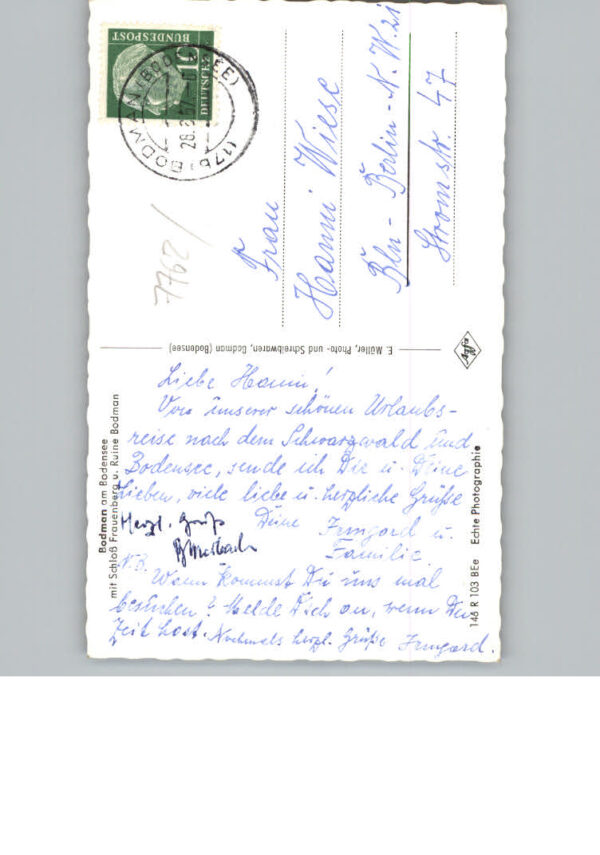 DEUTSCHE
BUNDESPOST
10
BODMAN
28.
57
7762/
Frau
Hanni Wiese
Bln - Berlin - N.W. 21
Stromstr. 47
E. Müller, Photo- und Schreibwaren, Bodman (Bodensee)
Agfa
Liebe Hanni!
Von unserer schönen Urlaubs-
reise nach dem Schwarzwald und
Bodensee, sende ich Dir u. Deine
Lieben, viele liebe u. herzliche Grüße
Deine Irmgard u.
Familie
Herzl. Gruß
N.B.
Wann kommst Du uns mal
besuchen? Melde Dich an, wenn Du
Zeit hast. Nochmals herzl. Grüße Irmgard.
Bodman am Bodensee
mit Schloß Frauenberg u. Ruine Bodman
146 R 103 BEe Echte Photographie